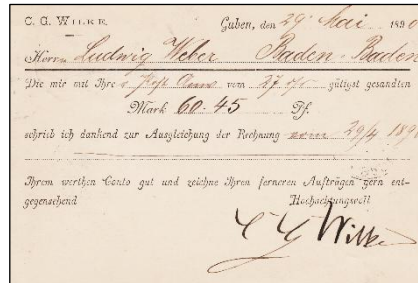 C. G. WILKE Guben, den 29 Mai 1890
Herrn Ludwig Weber Baden-Baden
Die mir mit Ihrer Post Anw vom 27/5 gütigst gesandten
Mark 60.45 Pf.
schrieb ich dankend zur Ausgleichung der Rechnung vom 29/4 1890
Ihrem werthen Conto gut und zeichne Ihren ferneren Aufträgen gern ent-
gegensehend Hochachtungsvoll
C G Wilke